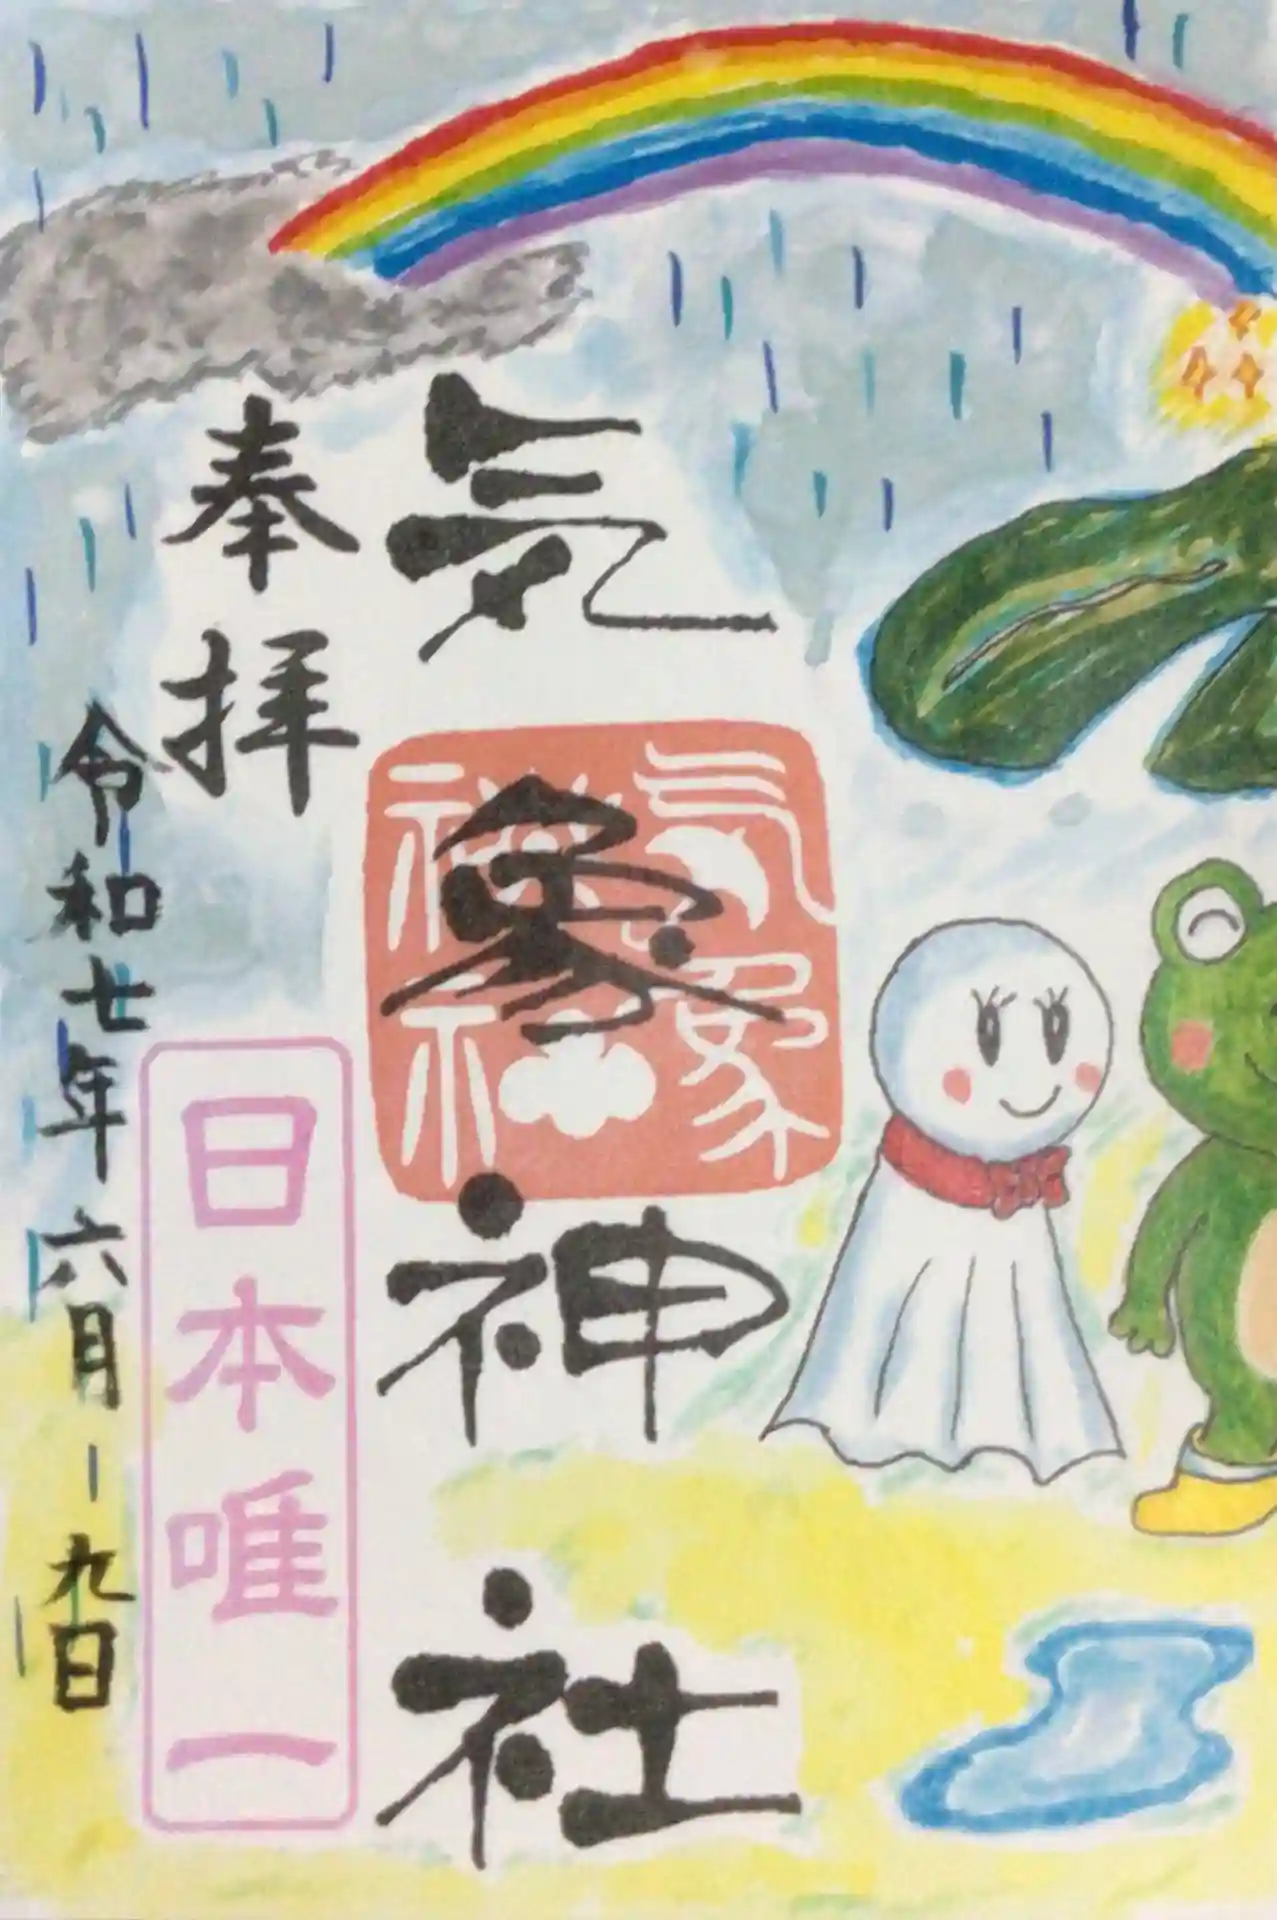 気象神社
気象神社
奉拝
日本唯一
令和七年六月二九日